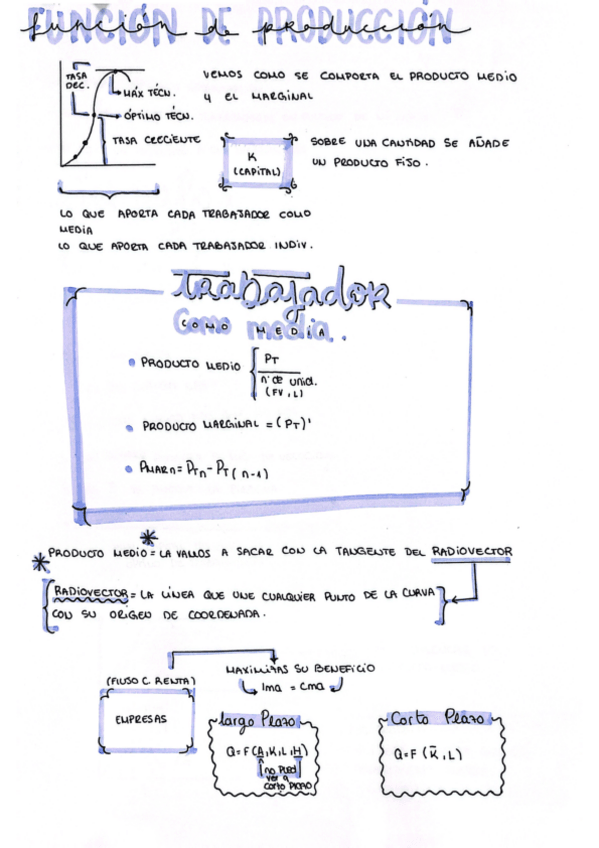 Función de producción
TASA
DEC.
MÁX TÉCN.
ÓPTIMO TÉCN.
TASA CRECIENTE
VEMOS COMO SE COMPORTA EL PRODUCTO MEDIO
Y EL MARGINAL
K
(CAPITAL)
SOBRE UNA CANTIDAD SE AÑADE
UN PRODUCTO FIJO.
LO QUE APORTA CADA TRABAJADOR COMO
MEDIA
LO QUE APORTA CADA TRABAJADOR INDIV.
trabajador
Como media.
COMO MEDIA
• PRODUCTO MEDIO { PT
nº de unid.
(FV, L)
• PRODUCTO MARGINAL = (PT)'
• PMARn = PTn - PT(n-1)
*
* PRODUCTO MEDIO = LA VAMOS A SACAR CON LA TANGENTE DEL RADIOVECTOR
RADIOVECTOR = LA LÍNEA QUE UNE CUALQUIER PUNTO DE LA CURVA
CON SU ORIGEN DE COORDENADA.
(FLUJO C. RENTA)
EMPRESAS
MAXIMIZAS SU BENEFICIO
Ima = Cma
largo Plazo
Q=F(A,K,L,H)
no pued
ver a
corto plazo
Corto Plazo
Q=F(K̄,L)